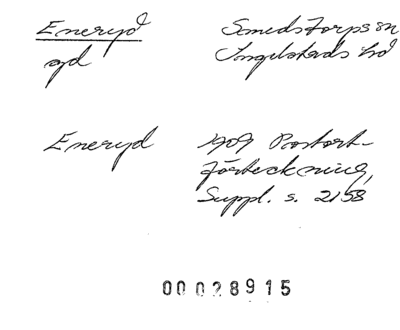 Eneryd Smedstorps sn
gd Ingelstads hd
Eneryd 1909 Postort-
förteckning,
Suppl. s. 2158
00028915